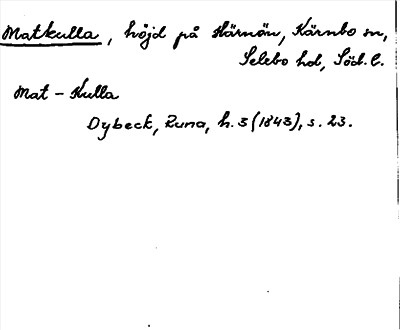 Matkulla, höjd på Härnön, Kärnbo sn,
Selebo hd, Söd. l.
Mat - Kulla
Dybeck, Runa, h. 3 (1843), s. 23.